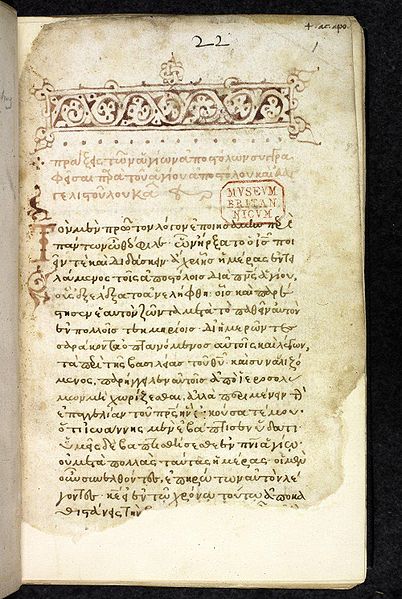 22
1
πράξεις τῶν ἁγίων ἀποστόλων συγγρα
φεῖσαι πρα τοῦ ἁγίου ἀποστόλου καὶ εὐαγ
γελιστοῦ λουκᾶ
MVSEVM
BRITAN
NICVM
Τὸν μὲν πρῶτον λόγον ἐποιησάμην περὶ
πάντων ὦ θεόφιλε· ὧν ἤρξατο ὁ ις ποι
εῖν τε καὶ διδάσκειν ἄχρι ἧς ἡμέρας ἐντει
λάμενος τοῖς ἀποστόλοις διὰ πνς ἁγίου,
οὓς ἐξελέξατο ἀνελήφθη· οἷς καὶ παρέ
στησεν ἑαυτὸν ζῶντα μετὰ τὸ παθεῖν αὐτὸν
ἐν πολλοῖς τεκμηρίοις· δι' ἡμερῶν τεσ
σαράκοντα ὀπτανόμενος αὐτοῖς καὶ λέγων,
τὰ περὶ τῆς βασιλείας τοῦ θυ· καὶ συναλιζό
μενος, παρήγγειλεν αὐτοῖς ἀπὸ ἱεροσολύ
μων μὴ χωρίζεσθαι, ἀλλὰ περιμένειν τὴν
ἐπαγγελίαν τοῦ πρς ἣν ἠκούσατέ μου·
ὅτι ἰωάννης μὲν ἐβάπτισεν ὕδατι
ὑμεῖς δὲ βαπτισθήσεσθε ἐν πνι ἁγίω
οὐ μετὰ πολλὰς ταύτας ἡμέρας· οἱ μὲν
οὖν συνελθόντες, ἐπηρώτων αὐτὸν λέ
γοντες· κε εἰ ἐν τῶ χρόνω τούτω ἀποκα
θιστάνεις τὴν